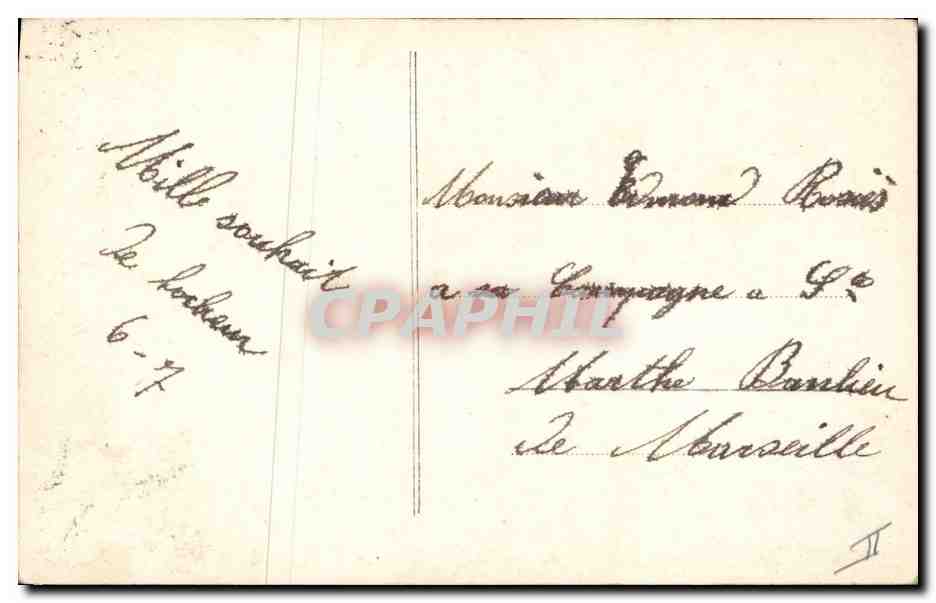 Mille souhait
de bocheur
6-7
Monsieur Edmond Rosiès
a sa Campagne a Ste
Marthe Banlieu
de Marseille
CPAPHIL
II